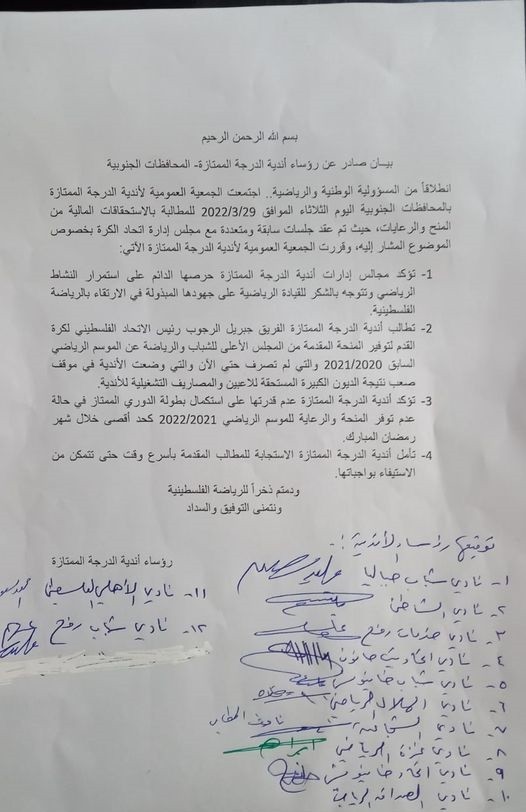 بسم الله الرحمن الرحيم
بيـــان صادر عن رؤساء أندية الدرجة الممتازة- المحافظات الجنوبية
انطلاقاً من المسؤولية الوطنية والرياضية.. اجتمعت الجمعية العمومية لأندية الدرجة الممتازة
بالمحافظات الجنوبية اليوم الثلاثاء الموافق 2022/3/29 للمطالبة بالاستحقاقات المالية من
المنح والرعايات، حيث تم عقد جلسات سابقة ومتعددة مع مجلس إدارة اتحاد الكرة بخصوص
الموضوع المشار إليه، وقررت الجمعية العمومية لأندية الدرجة الممتازة الآتي:
1- تؤكد مجالس إدارات أندية الدرجة الممتازة حرصها الدائم على استمرار النشاط
الرياضي وتتوجه بالشكر للقيادة الرياضية على جهودها المبذولة في الارتقاء بالرياضة
الفلسطينية.
2- تطالب أندية الدرجة الممتازة الفريق جبريل الرجوب رئيس الاتحاد الفلسطيني لكرة
القدم لتوفير المنحة المقدمة من المجلس الأعلى للشباب والرياضة عن الموسم الرياضي
السابق 2021/2020 والتي لم تصرف حتي الآن والتي وضعت الأندية في موقف
صعب نتيجة الديون الكبيرة المستحقة للاعبين والمصاريف التشغيلية للأندية.
3- تؤكد أندية الدرجة الممتازة عدم قدرتها على استكمال بطولة الدوري الممتاز في حالة
عدم توفر المنحة والرعاية للموسم الرياضي 2022/2021 كحد أقصى خلال شهر
رمضان المبارك.
4- تأمل أندية الدرجة الممتازة الاستجابة للمطالب المقدمة بأسرع وقت حتى تتمكن من
الاستيفاء بواجباتها.
ودمتم ذخراً للرياضة الفلسطينية
ونتمنى التوفيق والسداد
رؤساء أندية الدرجة الممتازة
توقيع رؤساء الأندية :-
١- نادي شباب جباليا
٢- نادي الشاطئ
٣- نادي خدمات رفح
٤- نادي اتحاد بيت حانون
٥- نادي شباب خانيونس
٦- نادي الهلال الرياضي
٧- نادي الشجاعية
٨- نادي غزة الرياضي
٩- نادي اتحاد خانيونس
١٠- نادي الصداقة الرياضي
١١- نادي الأهلي الفلسطيني
١٢- نادي شباب رفح